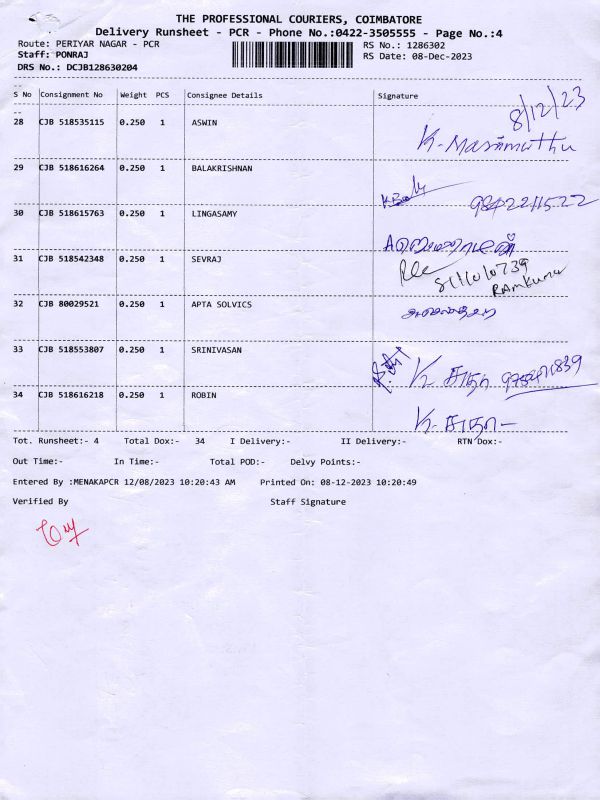 THE PROFESSIONAL COURIERS, COIMBATORE
Delivery Runsheet - PCR - Phone No.:0422-3505555 - Page No.:4
Route: PERIYAR NAGAR - PCR
RS No.: 1286302
Staff: PONRAJ
RS Date: 08-Dec-2023
DRS No.: DCJB128630204
S No Consignment No Weight PCS Consignee Details Signature
8/12/23
28 CJB 518535115 0.250 1 ASWIN
K. Marimuthu
29 CJB 518616264 0.250 1 BALAKRISHNAN
9842211522
30 CJB 518615763 0.250 1 LINGASAMY
31 CJB 518542348 0.250 1 SEVRAJ
Ramkumar
32 CJB 80029521 0.250 1 APTA SOLVICS
33 CJB 518553807 0.250 1 SRINIVASAN
K. சுதா
34 CJB 518616218 0.250 1 ROBIN
K. சுதா
Tot. Runsheet:- 4 Total Dox:- 34 I Delivery:- II Delivery:- RTN Dox:-
Out Time:- In Time:- Total POD:- Delvy Points:-
Entered By :MENAKAPCR 12/08/2023 10:20:43 AM Printed On: 08-12-2023 10:20:49
Verified By Staff Signature